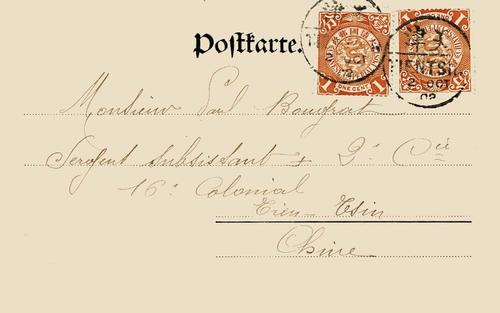 Postkarte.
ONE CENT
TIENTSIN
2 OCT
02
Monsieur Paul Bougrat
Sergent subsistant 2e Cie
16e Colonial
Tien-Tsin
Chine